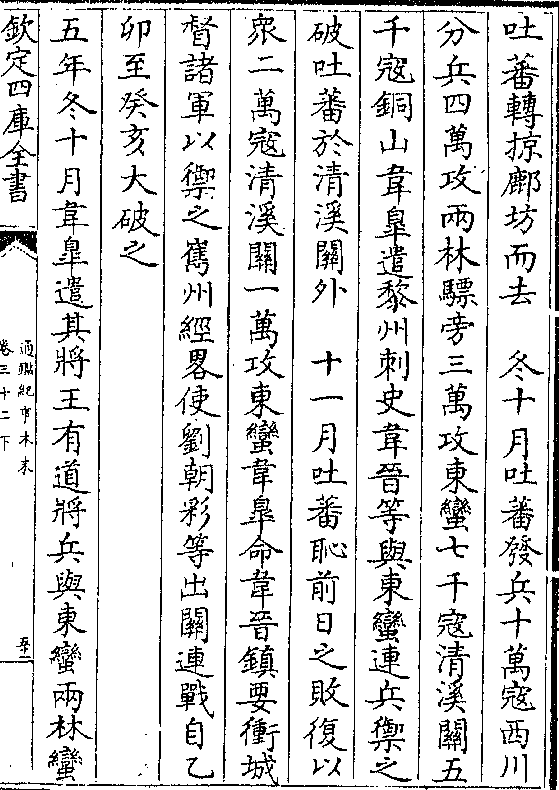 吐蕃轉掠鄜坊而去　冬十月吐蕃發兵十萬寇西川
分兵四萬攻兩林驃旁三萬攻東蠻七千寇清溪關五
千寇銅山韋臯遣黎州刺史韋晉等與東蠻連兵禦之
破吐蕃於清溪關外　十一月吐蕃恥前日之敗復以
衆二萬寇清溪關一萬攻東蠻韋臯命韋晉鎮要衝城
督諸軍以禦之嶲州經畧使劉朝彩等出關連戰自乙
卯至癸亥大破之
五年冬十月韋臯遣其將王有道將兵與東蠻兩林蠻
欽定四庫全書
通鑑紀事本末
卷三十二下